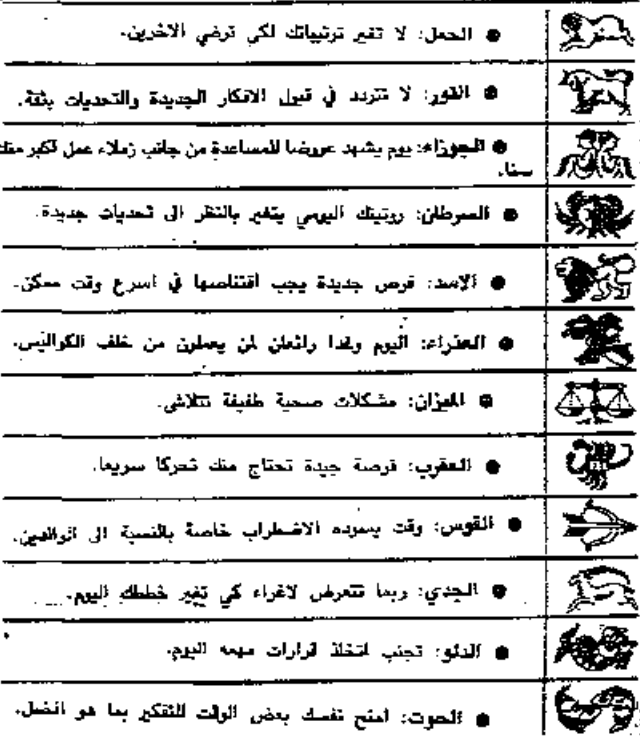 ● الحمل: لا تغير ترتيباتك لكي ترضي الاخرين.
● الثور: لا تتردد في قبول الافكار الجديدة والتحديات بثقة.
● الجوزاء: يوم يشهد عروضا للمساعدة من جانب زملاء عمل اكبر منك
سنا.
● السرطان: روتينك اليومي يتغير بالنظر الى تحديات جديدة.
● الاسد: فرص جديدة يجب اقتناصها في اسرع وقت ممكن.
● العذراء: اليوم وغدا رائعان لمن يعملون من خلف الكواليس.
● الميزان: مشكلات صحية طفيفة تتلاشى.
● العقرب: فرصة جيدة تحتاج منك تحركا سريعا.
● القوس: وقت يسوده الاضطراب خاصة بالنسبة الى الوالدين.
● الجدي: ربما تتعرض لاغراء كي تغير خططك اليوم.
● الدلو: تجنب اتخاذ قرارات مهمه اليوم.
● الحوت: امنح نفسك بعض الوقت للتفكير بما هو افضل.